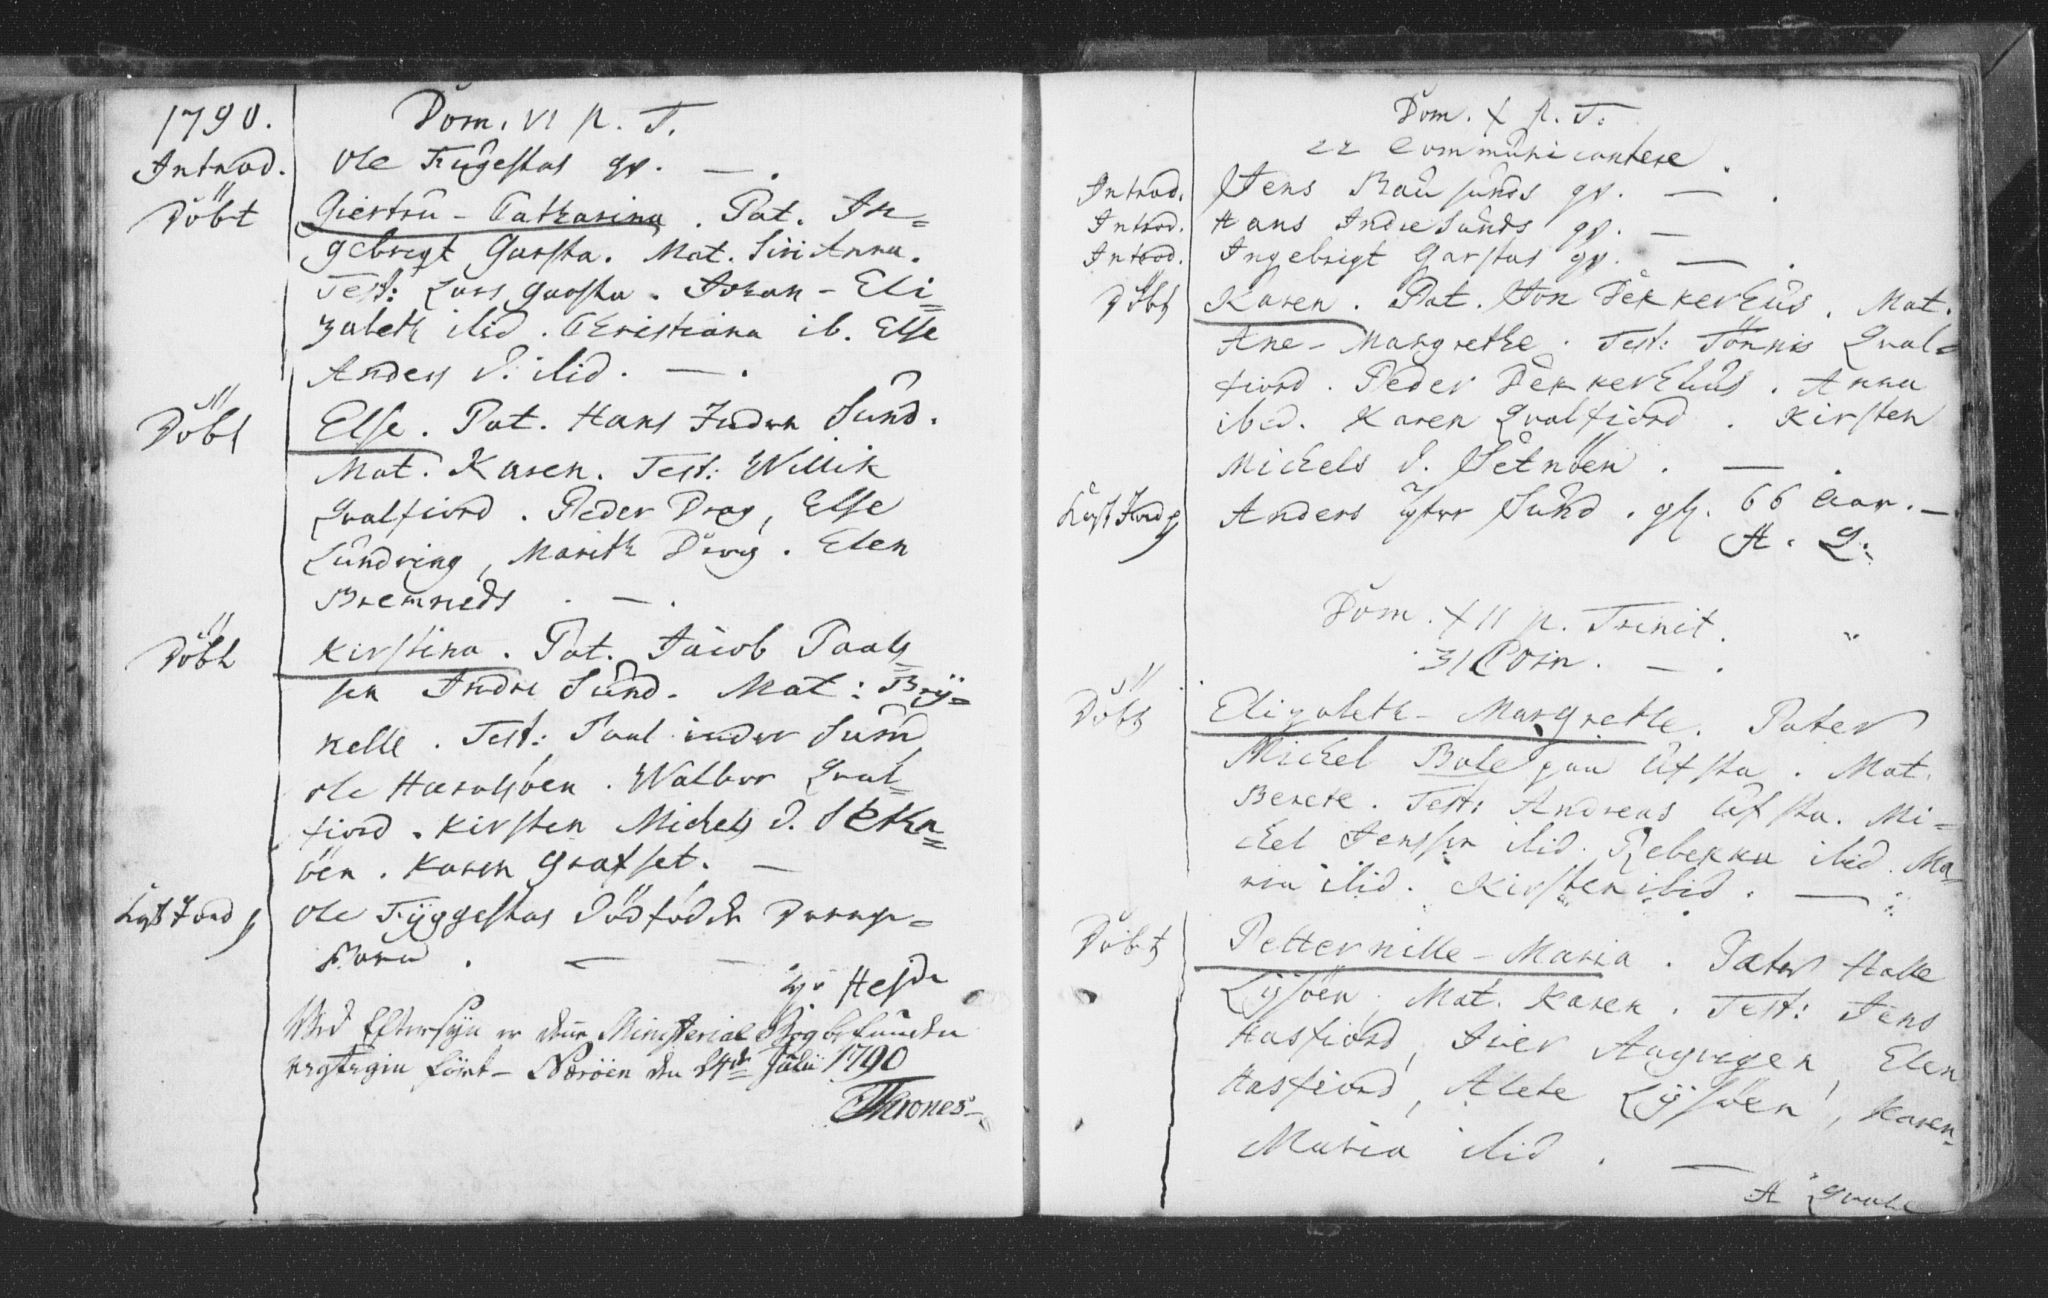 1790.
Dom. VI p. T.
Introd. Ole Fugestas qv. — .
Döbt Giertru - Catharina . Pat. In=
gebrigt Garsta. Mat. Siri Anna.
Test: Lars Garsta. Johan - Eli=
zabeth ibid. Christiana ib. Else
Anders D. ibid. — .
Döbt Else. Pat. Hans Inder Sund.
Mat. Karen. Test: Willik
Qvalfiord . Peder Drag, Else
Lundring, Marith Drag. Elen
Bremneds . — .
Döbt Kirstina . Pat. Jacob Paals
sen Indre Sund. Mat: Bry=
nelle . Test: Paul inder Sund
Ole Haralsöen . Walbor Qval=
fiord . Kirsten Michels D. Setn=
öen . Karen Grafset. —
Kast Jord p Ole Fyggestas Dödfödde Drenge=
Barn . — —
Hejde
Ved Eftersyn er denne Ministerial Bog befunden
rigtigen fört - Næröen den 24de Julii 1790
Thrones
Dom. X p. T.
22 Communicantere .
Introd. Jens Rausunds qv. — .
Introd. Hans Indre Sunds qv. —
Introd. Ingebrigt Garstas qv. — .
Döbt Karen . Pat. Jon Dekkerhus . Mat.
Ane - Margrethe . Test: Tönnis Qval=
fiord . Peder Dekkerhuus . Anna
ibid. Karen Qvalfiord . Kirsten
Michels D. Setnöen . — .
Kast Jord p Anders ytter Sund . gl. 66 Aar. —
A. Q.
Dom. XII p. Trinit.
31 Com. — .
Döbt Elizabeth - Margrethe. Pater
Michel Bole paa Ufsta . Mat.
Berete. Test: Andreas Ufsta. Mi=
chel Jenssen ibid. Rebekka ibid. Ma=
ria ibid. Kirsten ibid . —
Döbt Petternille - Maria . Pater Halle
Lysöen. Mat. Karen . Test: Jens
Hasfiord, Iver Aagvigen, Elen
Hasfiord, Alete Lysöen, Karen
Maria ibid . —
A Qvale